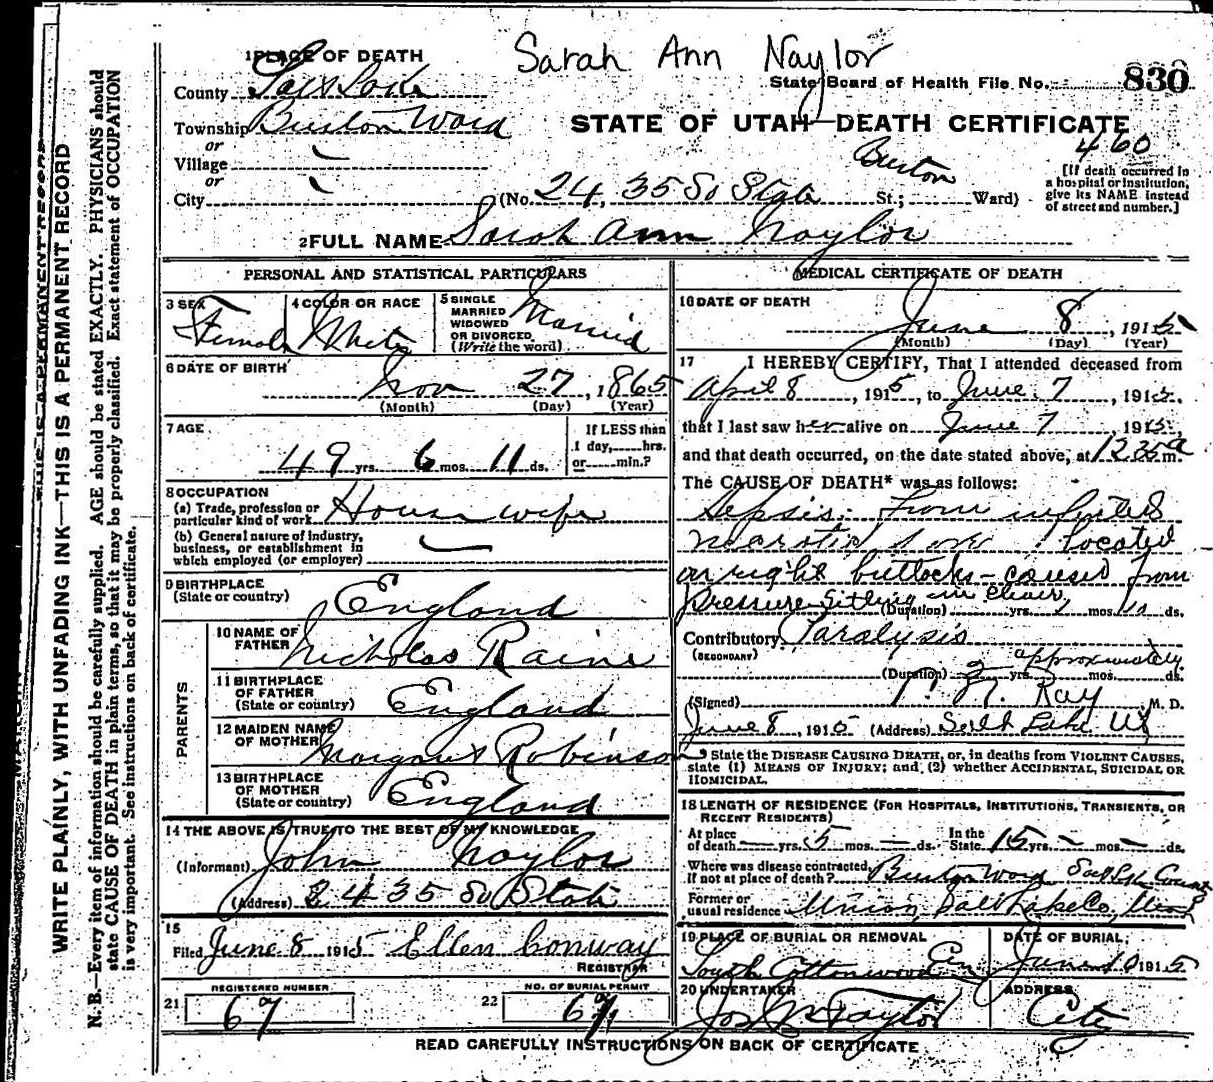 Sarah Ann Naylor
1 PLACE OF DEATH
State Board of Health File No. 830
County Salt Lake
Township Burton Ward
or
Village
or
City
STATE OF UTAH—DEATH CERTIFICATE
460
(No. 2435 So State St.; Burton Ward)
[If death occurred in
a hospital or institution,
give its NAME instead
of street and number.]
2 FULL NAME Sarah Ann Naylor
PERSONAL AND STATISTICAL PARTICULARS
3 SEX Female
4 COLOR OR RACE White
5 SINGLE
MARRIED
WIDOWED
OR DIVORCED
(Write the word) Married
6 DATE OF BIRTH
Nov 27, 1865
(Month) (Day) (Year)
7 AGE
49 yrs. 6 mos. 11 ds.
If LESS than
1 day, hrs.
or min.?
8 OCCUPATION
(a) Trade, profession or
particular kind of work Housewife
(b) General nature of industry,
business, or establishment in
which employed (or employer)
9 BIRTHPLACE
(State or country) England
PARENTS
10 NAME OF
FATHER Nicholas Raine
11 BIRTHPLACE
OF FATHER
(State or country) England
12 MAIDEN NAME
OF MOTHER Margaret Robinson
13 BIRTHPLACE
OF MOTHER
(State or country) England
14 THE ABOVE IS TRUE TO THE BEST OF MY KNOWLEDGE
(Informant) John Naylor
(Address) 2435 So State
15
Filed June 8 1915 Ellen Conway
REGISTRAR
21 REGISTERED NUMBER
67
22 NO. OF BURIAL PERMIT
67
MEDICAL CERTIFICATE OF DEATH
16 DATE OF DEATH
June 8, 1915
(Month) (Day) (Year)
17 I HEREBY CERTIFY, That I attended deceased from
April 8, 1915, to June 7, 1915.
that I last saw her alive on June 7 1915,
and that death occurred, on the date stated above, at 12 35 a m.
The CAUSE OF DEATH* was as follows:
Sepsis. From infected
necrotic sore located
on right buttocks - caused from
pressure sitting in chair,
(Duration) yrs. mos. ds.
Contributory Paralysis
(SECONDARY)
approximately
(Duration) 2 yrs. mos. ds.
(Signed) R. Ray M. D.
June 8, 1915 (Address) Salt Lake Ut
* State the DISEASE CAUSING DEATH, or, in deaths from VIOLENT CAUSES,
state (1) MEANS OF INJURY; and, (2) whether ACCIDENTAL, SUICIDAL OR
HOMICIDAL.
18 LENGTH OF RESIDENCE (FOR HOSPITALS, INSTITUTIONS, TRANSIENTS, OR
RECENT RESIDENTS)
At place
of death — yrs. 5 mos. — ds. In the
State 15 yrs. — mos. — ds.
Where was disease contracted
If not at place of death? Burton Ward Salt Lake County
Former or
usual residence Union, Salt Lake Co, Utah
19 PLACE OF BURIAL OR REMOVAL
South Cottonwood Cem
DATE OF BURIAL
June 10 1915
20 UNDERTAKER
Jos Wm Taylor
ADDRESS
City
READ CAREFULLY INSTRUCTIONS ON BACK OF CERTIFICATE
WRITE PLAINLY, WITH UNFADING INK—THIS IS A PERMANENT RECORD
N. B.—Every item of information should be carefully supplied. AGE should be stated EXACTLY. PHYSICIANS should
state CAUSE OF DEATH in plain terms, so that it may be properly classified. Exact statement of OCCUPATION
is very important. See instructions on back of certificate.